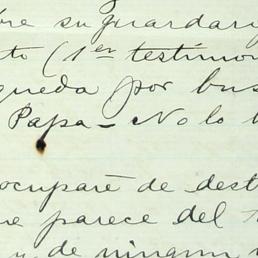 re su guardar
to (1er testimo
queda por bus
Papa - No lo
ocuparé de dest
re parece del
y de ningun